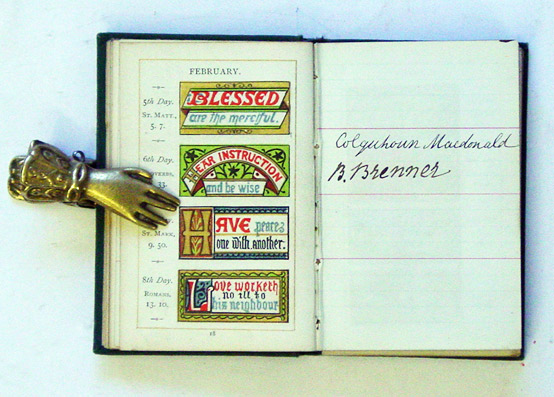 FEBRUARY.
5th Day.
St. Matt.,
5. 7.
BLESSED
are the merciful.
6th Day.
33.
HEAR INSTRUCTION
and be wise
St. Mark,
9. 50.
HAVE peace
one with another.
8th Day.
Romans,
13. 10.
Love worketh
no ill to
his neighbour
18
Colquhoun Macdonald
B. Brenner